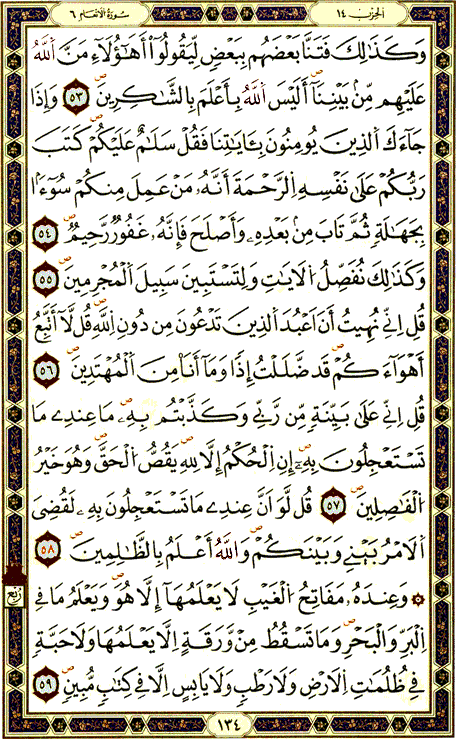 الحزب ١٤
سورة الأنعام ٦
وَكَذَٰلِكَ فَتَنَّا بَعْضَهُم بِبَعْضٍ لِّيَقُولُوٓا۟ أَهَٰٓؤُلَآءِ مَنَّ اَ۬للَّهُ
عَلَيْهِم مِّنۢ بَيْنِنَآ أَلَيْسَ اَ۬للَّهُ بِأَعْلَمَ بِالشَّٰكِرِينَ ٥٣ وَإِذَا
جَآءَكَ اَ۬لذِينَ يُومِنُونَ بِـَٔايَٰتِنَا فَقُلْ سَلَٰمٌ عَلَيْكُمْ كَتَبَ
رَبُّكُمْ عَلَىٰ نَفْسِهِ اِ۬لرَّحْمَةَ أَنَّهُۥ مَنْ عَمِلَ مِنكُمْ سُوٓءَاۢ
بِجَهَٰلَةٍ ثُمَّ تَابَ مِنۢ بَعْدِهِۦ وَأَصْلَحَ فَإِنَّهُۥ غَفُورٌ رَّحِيمٌ ٥٤
وَكَذَٰلِكَ نُفَصِّلُ اُ۬لَايَٰتِ وَلِتَسْتَبِينَ سَبِيلَ اَ۬لْمُجْرِمِينَ ٥٥
قُلِ اِنِّے نُهِيتُ أَنَ اَعْبُدَ اَ۬لذِينَ تَدْعُونَ مِن دُونِ اِ۬للَّهِ قُل لَّآ أَتَّبِعُ
أَهْوَآءَكُمْ قَد ضَّلَلْتُ إِذاٗ وَمَآ أَنَا مِنَ اَ۬لْمُهْتَدِينَ ٥٦
قُلِ اِنِّے عَلَىٰ بَيِّنَةٍ مِّن رَّبِّے وَكَذَّبْتُم بِهِۦ مَا عِندِے مَا
تَسْتَعْجِلُونَ بِهِۦٓ إِنِ اِ۬لْحُكْمُ إِلَّا لِلهِ يَقُصُّ اُ۬لْحَقَّ وَهُوَ خَيْرُ
اُ۬لْفَٰصِلِينَ ٥٧ قُل لَّوَ اَنَّ عِندِے مَا تَسْتَعْجِلُونَ بِهِۦ لَقُضِيَ
اَ۬لَامْرُ بَيْنِے وَبَيْنَكُمْ وَاللَّهُ أَعْلَمُ بِالظَّٰلِمِينَ ٥٨
۞ وَعِندَهُۥ مَفَاتِحُ اُ۬لْغَيْبِ لَا يَعْلَمُهَآ إِلَّا هُوَ وَيَعْلَمُ مَا فِے
اِ۬لْبَرِّ وَالْبَحْرِ وَمَا تَسْقُطُ مِنْ وَّرَقَةٍ اِلَّا يَعْلَمُهَا وَلَا حَبَّةٍ
فِے ظُلُمَٰتِ اِ۬لَارْضِ وَلَا رَطْبٍ وَلَا يَابِسٍ اِلَّا فِے كِتَٰبٍ مُّبِينٍ ٥٩
ربع
١٣٤